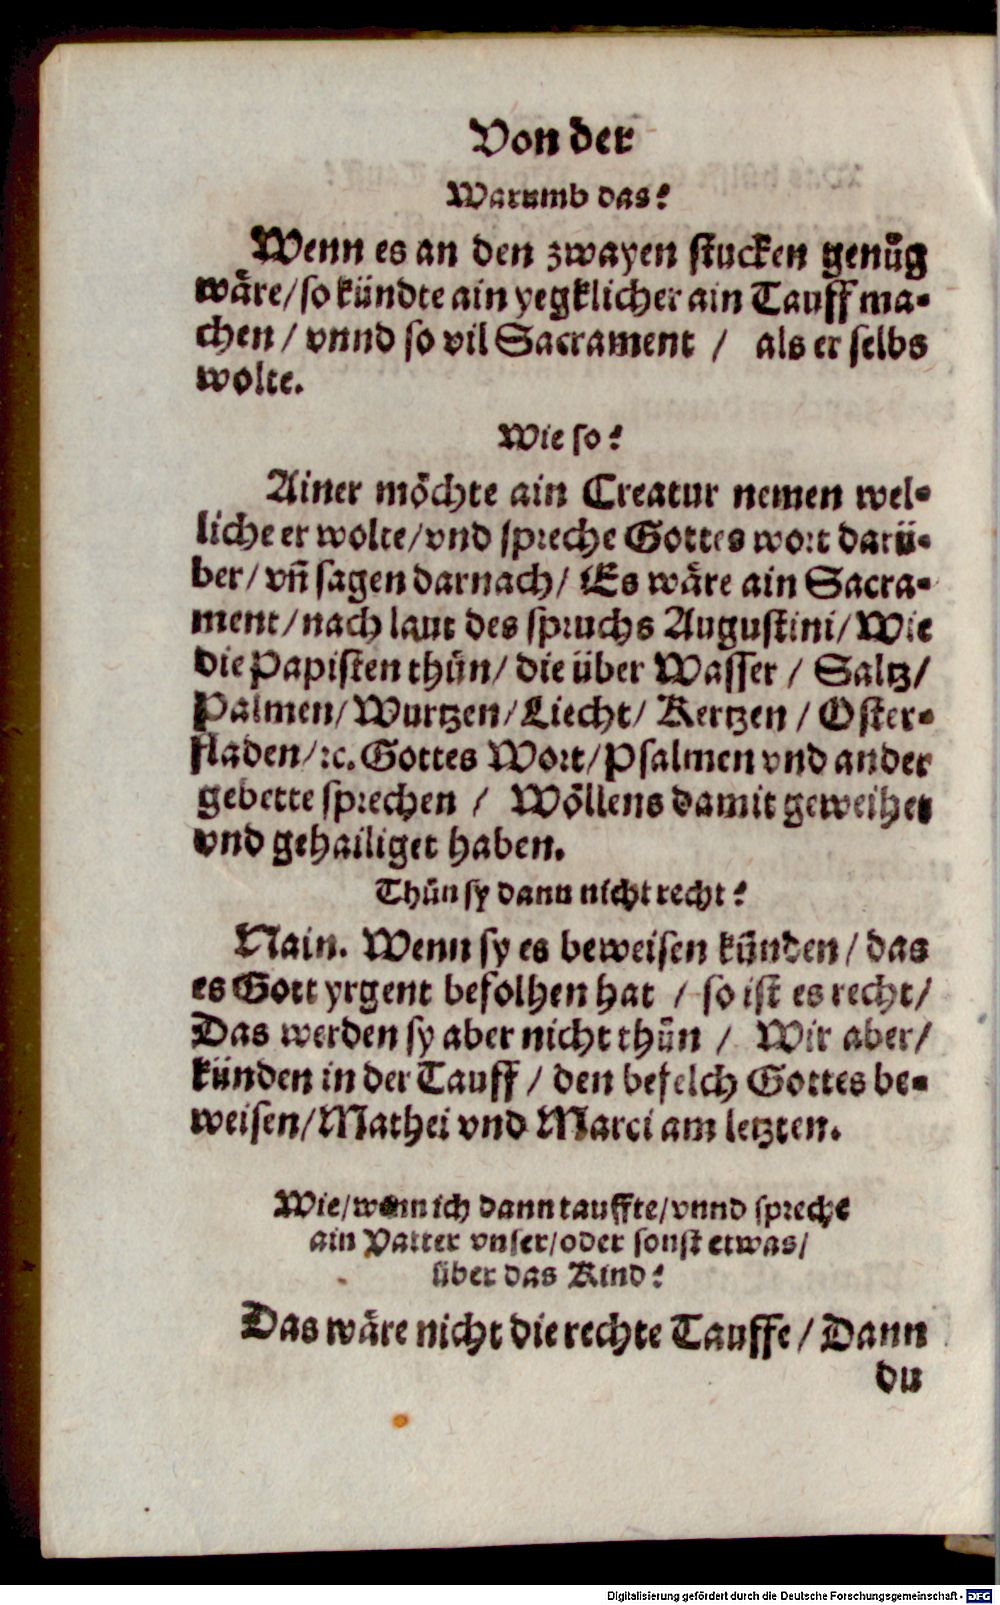 Von der
Warumb das?
Wenn es an den zwayen stucken genůg
wäre/ so kündte ain yegklicher ain Tauff ma-
chen / vnnd so vil Sacrament / als er selbs
wolte.
Wie so?
Ainer möchte ain Creatur nemen wel-
liche er wolte/ vnd spreche Gottes wort darü-
ber/ vñ sagen darnach/ Es wäre ain Sacra-
ment/ nach laut des spruchs Augustini/ Wie
die Papisten thůn/ die über Wasser / Saltz/
Palmen/ Wurtzen/ Liecht/ Kertzen / Oster-
fladen/ ꝛc. Gottes Wort/ Psalmen vnd ander
gebette sprechen / Wöllens damit geweihet
vnd gehailiget haben.
Thůn sy dann nicht recht?
Nain. Wenn sy es beweisen künden/ das
es Gott yrgent befolhen hat / so ist es recht/
Das werden sy aber nicht thůn / Wir aber/
künden in der Tauff / den befelch Gottes be-
weisen/ Mathei vnd Marci am letzten.
Wie/ wenn ich dann tauffte/ vnnd spreche
ain Patter vnser/ oder sonst etwas/
über das Kind?
Das wäre nicht die rechte Tauffe / Dann
du
Digitalisierung gefördert durch die Deutsche Forschungsgemeinschaft - DFG